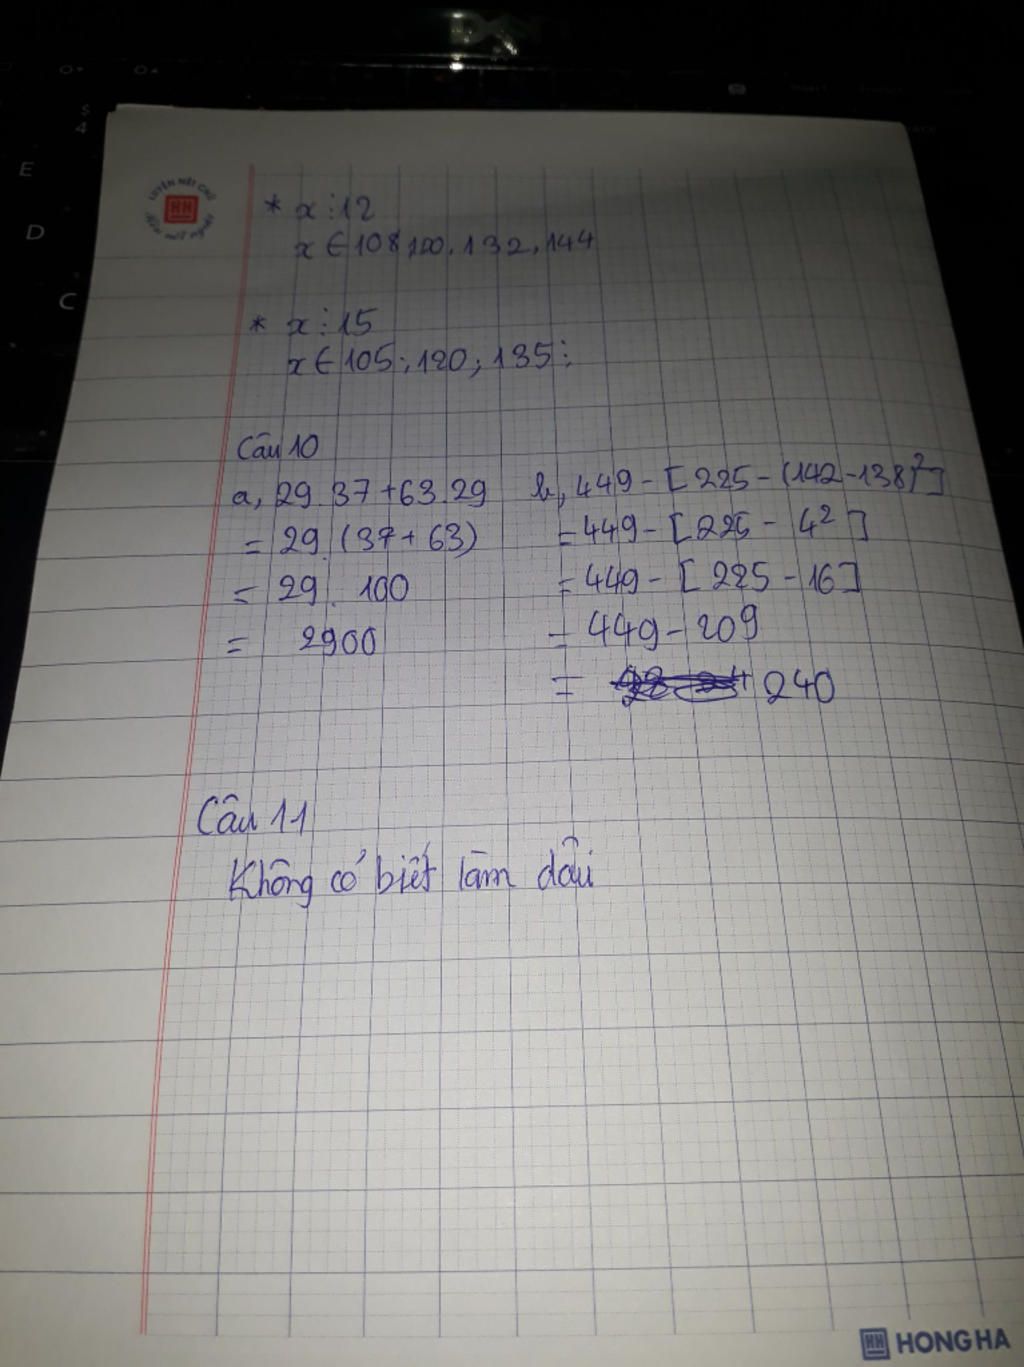 LUYỆN NÉT CHỮ
HH
* x ⋮ 12
x ∈ 108, 120, 132, 144
* x ⋮ 15
x ∈ 105 ; 120 ; 135 ;
Câu 10
a, 29.37+63.29
= 29.(37+63)
= 29. 100
= 2900
b, 449 - [225 - (142-138)²]
= 449 - [225 - 4²]
= 449 - [225 - 16]
= 449 - 209
= 240
Câu 11
Không có biết làm dâu
HH HONG HA
E
D
C
S
4